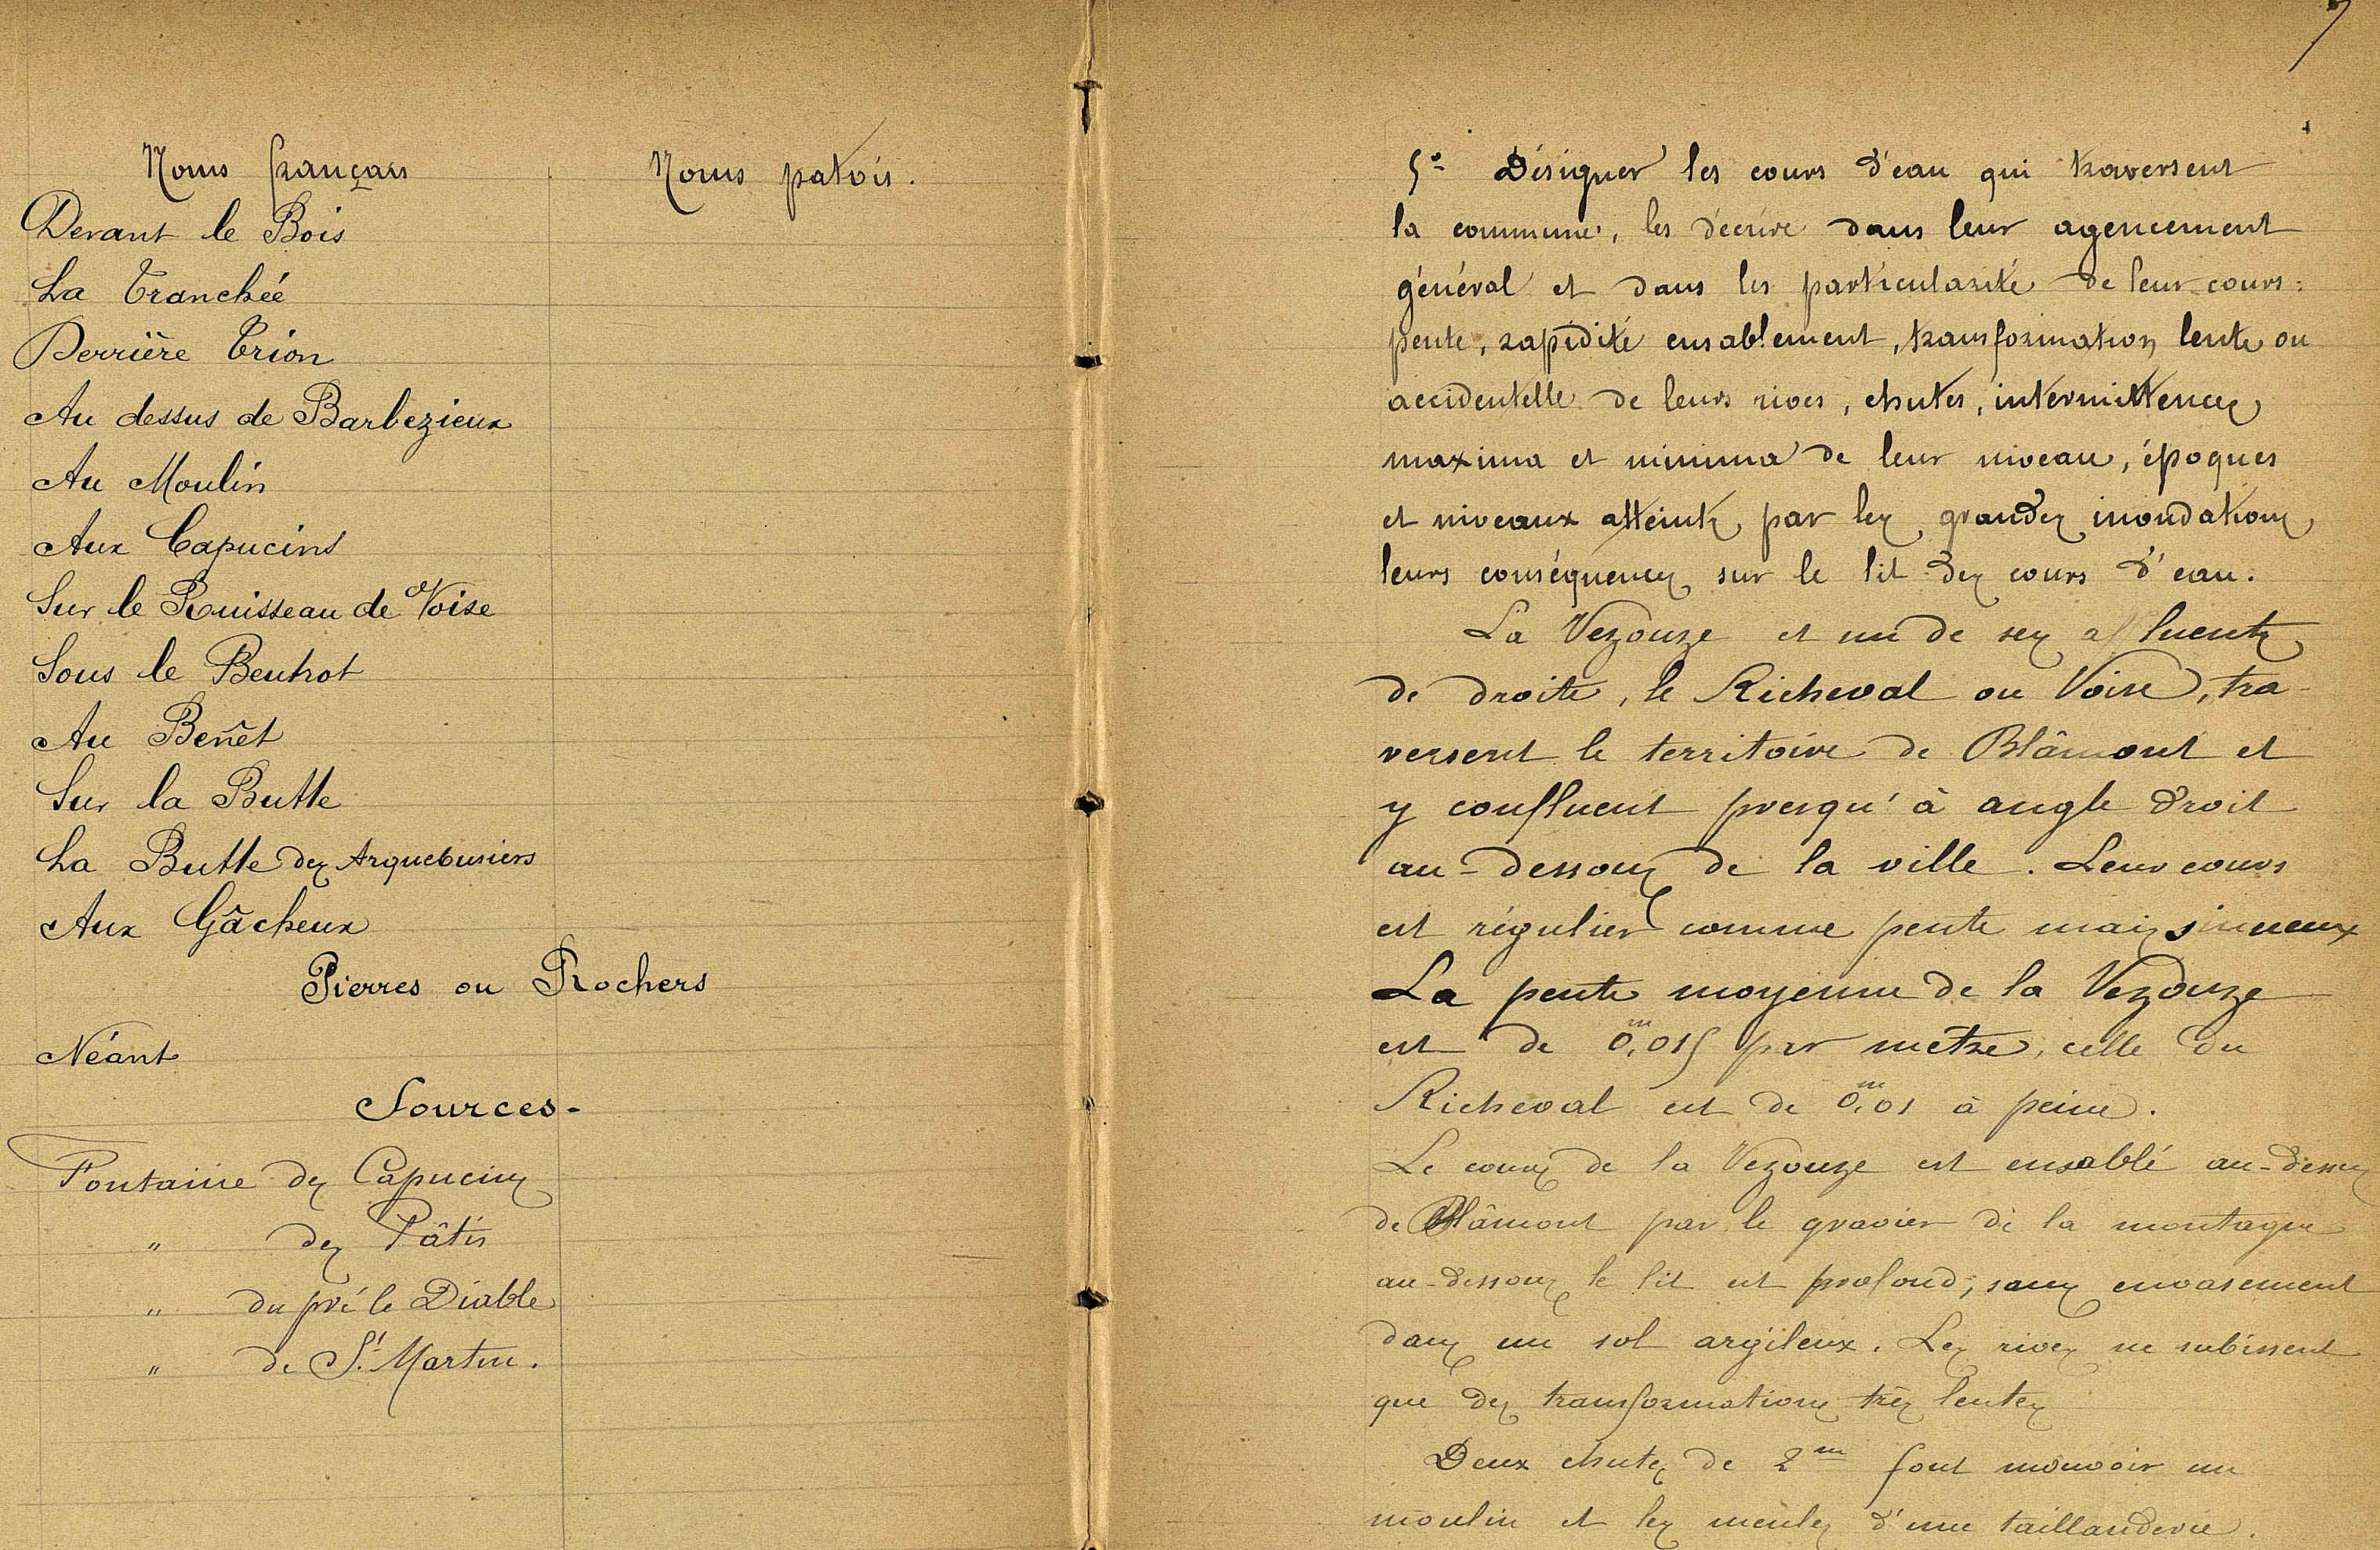 Noms français
Noms patois.
Devant le Bois
La Tranchée
Derrière Trion
Au dessus de Barbezieux
Au Moulin
Aux Capucins
Sur le Ruisseau de Voise
Sous le Beuhot
Au Benêt
Sur la Butte
La Butte des Arquebusiers
Aux Gâcheux
Pierres ou Rochers
Néant
Sources-
Fontaine des Capucins
" des Pâtis
" du pré le Diable
" de St. Martin.
7
5º Désigner les cours d'eau qui traversent
la commune, les décrire dans leur agencement
général et dans les particularité de leur cours:
pente, rapidité ensablement, transformation lente ou
accidentelle de leurs rives, chutes, intermittences
maxima et minima de leur niveau, époques
et niveaux atteints par les grandes inondations
leurs conséquences sur le lit des cours d'eau.
La Vezouze et un de ses affluents
de droite, le Richeval ou Voise, tra-
versent le territoire de Blâmont et
y confluent presqu'à angle droit
au-dessous de la ville. Leur cours
est régulier comme pente mais sinueux
La pente moyenne de la Vezouze
est de 0,m015 par mètre, celle du
Richeval est de 0,m01 à peine.
Le cours de la Vezouze est ensablé au-dessus
de Blâmont par le gravier de la montagne
au-dessous le lit est profond, sans envasement
dans un sol argileux. Les rives ne subissent
que des transformations très lentes
Deux chutes de 2m font mouvoir un
moulin et les meules d'une taillanderie.